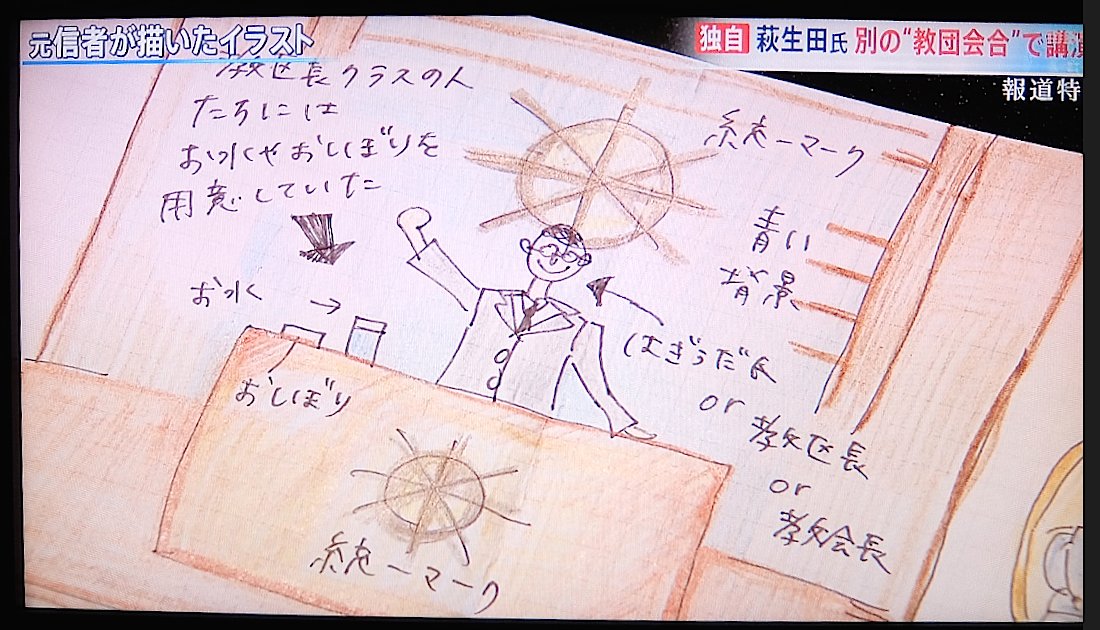 元信者が描いたイラスト
独自 萩生田氏 別の“教団会合”で講演
報道特
教区長クラスの人
たちには
お水やおしぼりを
用意していた
統一マーク
青い
背景
お水
→
おしぼり
はぎうだ氏
or
教区長
or
教会長
統一マーク